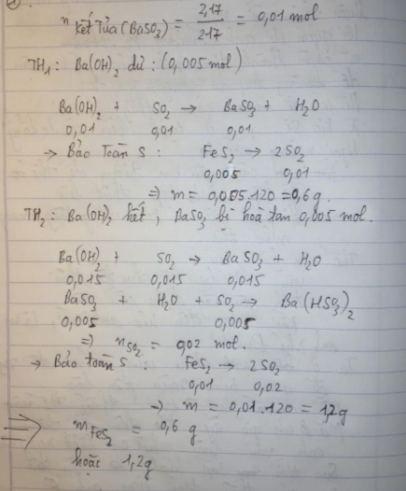 n kết tủa (BaSO₃) = 2,17/217 = 0,01 mol
TH₁ : Ba(OH)₂ dư : (0,005 mol)
Ba(OH)₂ + SO₂ → BaSO₃ + H₂O
0,01 0,01 0,01
→ Bảo Toàn S : FeS₂ → 2SO₂
0,005 0,01
⇒ m = 0,005.120 = 0,6 g
TH₂ : Ba(OH)₂ hết , BaSO₃ bị hoà tan 0,005 mol.
Ba(OH)₂ + SO₂ → BaSO₃ + H₂O
0,015 0,015 0,015
BaSO₃ + H₂O + SO₂ → Ba(HSO₃)₂
0,005 0,005
⇒ nSO₂ = 0,02 mol.
→ Bảo toàn S : FeS₂ → 2SO₂
0,01 0,02
⇒ m = 0,01.120 = 1,2g
⇒ mFeS₂ = 0,6 g
hoặc 1,2g